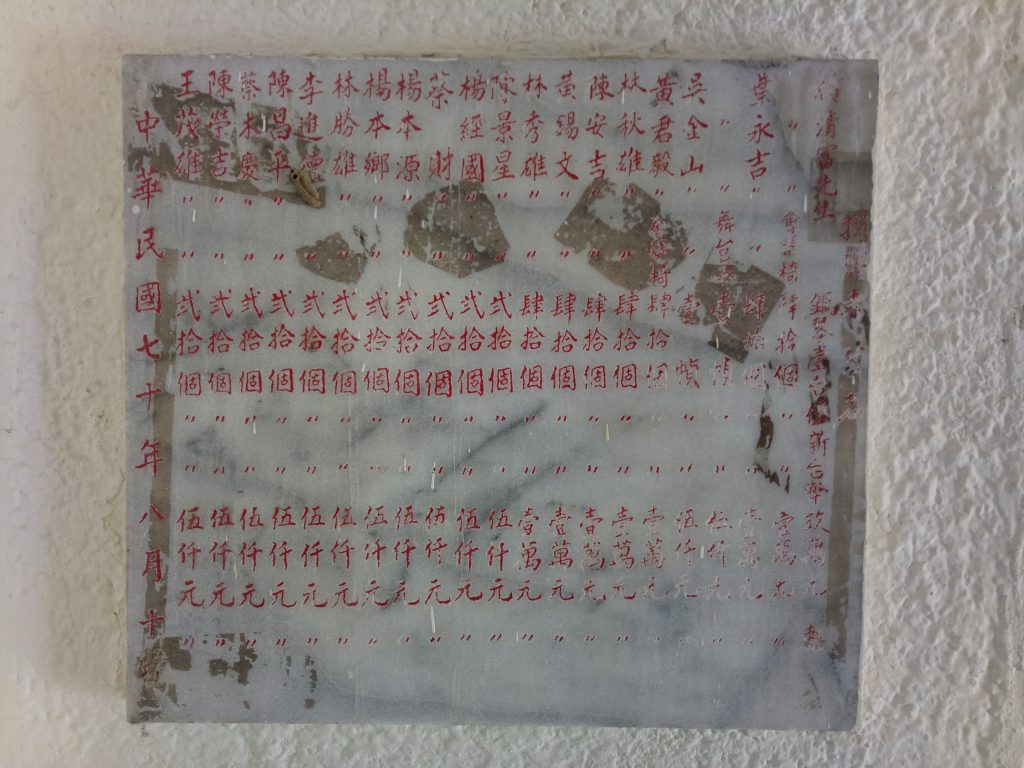 捐
清富先生 鋼琴壹台值新台幣玖萬元
〃 〃 會議椅肆拾個 〃 壹萬元
葉永吉 〃 肆拾個 〃 〃 壹萬元
〃 〃 舞台 壹幀 〃 〃 伍仟元
吳金山 〃 壹幀 〃 〃 伍仟元 〃
黃君毅 〃 椅 肆拾個 〃 〃 壹萬元 〃
林秋雄 〃 〃 肆拾個 〃 〃 壹萬元 〃
陳安吉 〃 〃 肆拾個 〃 〃 壹萬元 〃
黃錫文 〃 〃 肆拾個 〃 〃 壹萬元 〃
林秀雄 〃 〃 肆拾個 〃 〃 壹萬元 〃
陳景星 〃 〃 弍拾個 〃 〃 伍仟元 〃
楊經國 〃 〃 弍拾個 〃 〃 伍仟元 〃
蔡財 〃 〃 弍拾個 〃 〃 伍仟元 〃
楊本源 〃 〃 弍拾個 〃 〃 伍仟元 〃
楊本鄉 〃 〃 弍拾個 〃 〃 伍仟元 〃
林勝雄 〃 〃 弍拾個 〃 〃 伍仟元 〃
李進德 〃 〃 弍拾個 〃 〃 伍仟元 〃
陳昌平 〃 〃 弍拾個 〃 〃 伍仟元 〃
蔡木慶 〃 〃 弍拾個 〃 〃 伍仟元 〃
陳榮吉 〃 〃 弍拾個 〃 〃 伍仟元 〃
王茂雄 〃 〃 弍拾個 〃 〃 伍仟元 〃
中華民國七十年八月十